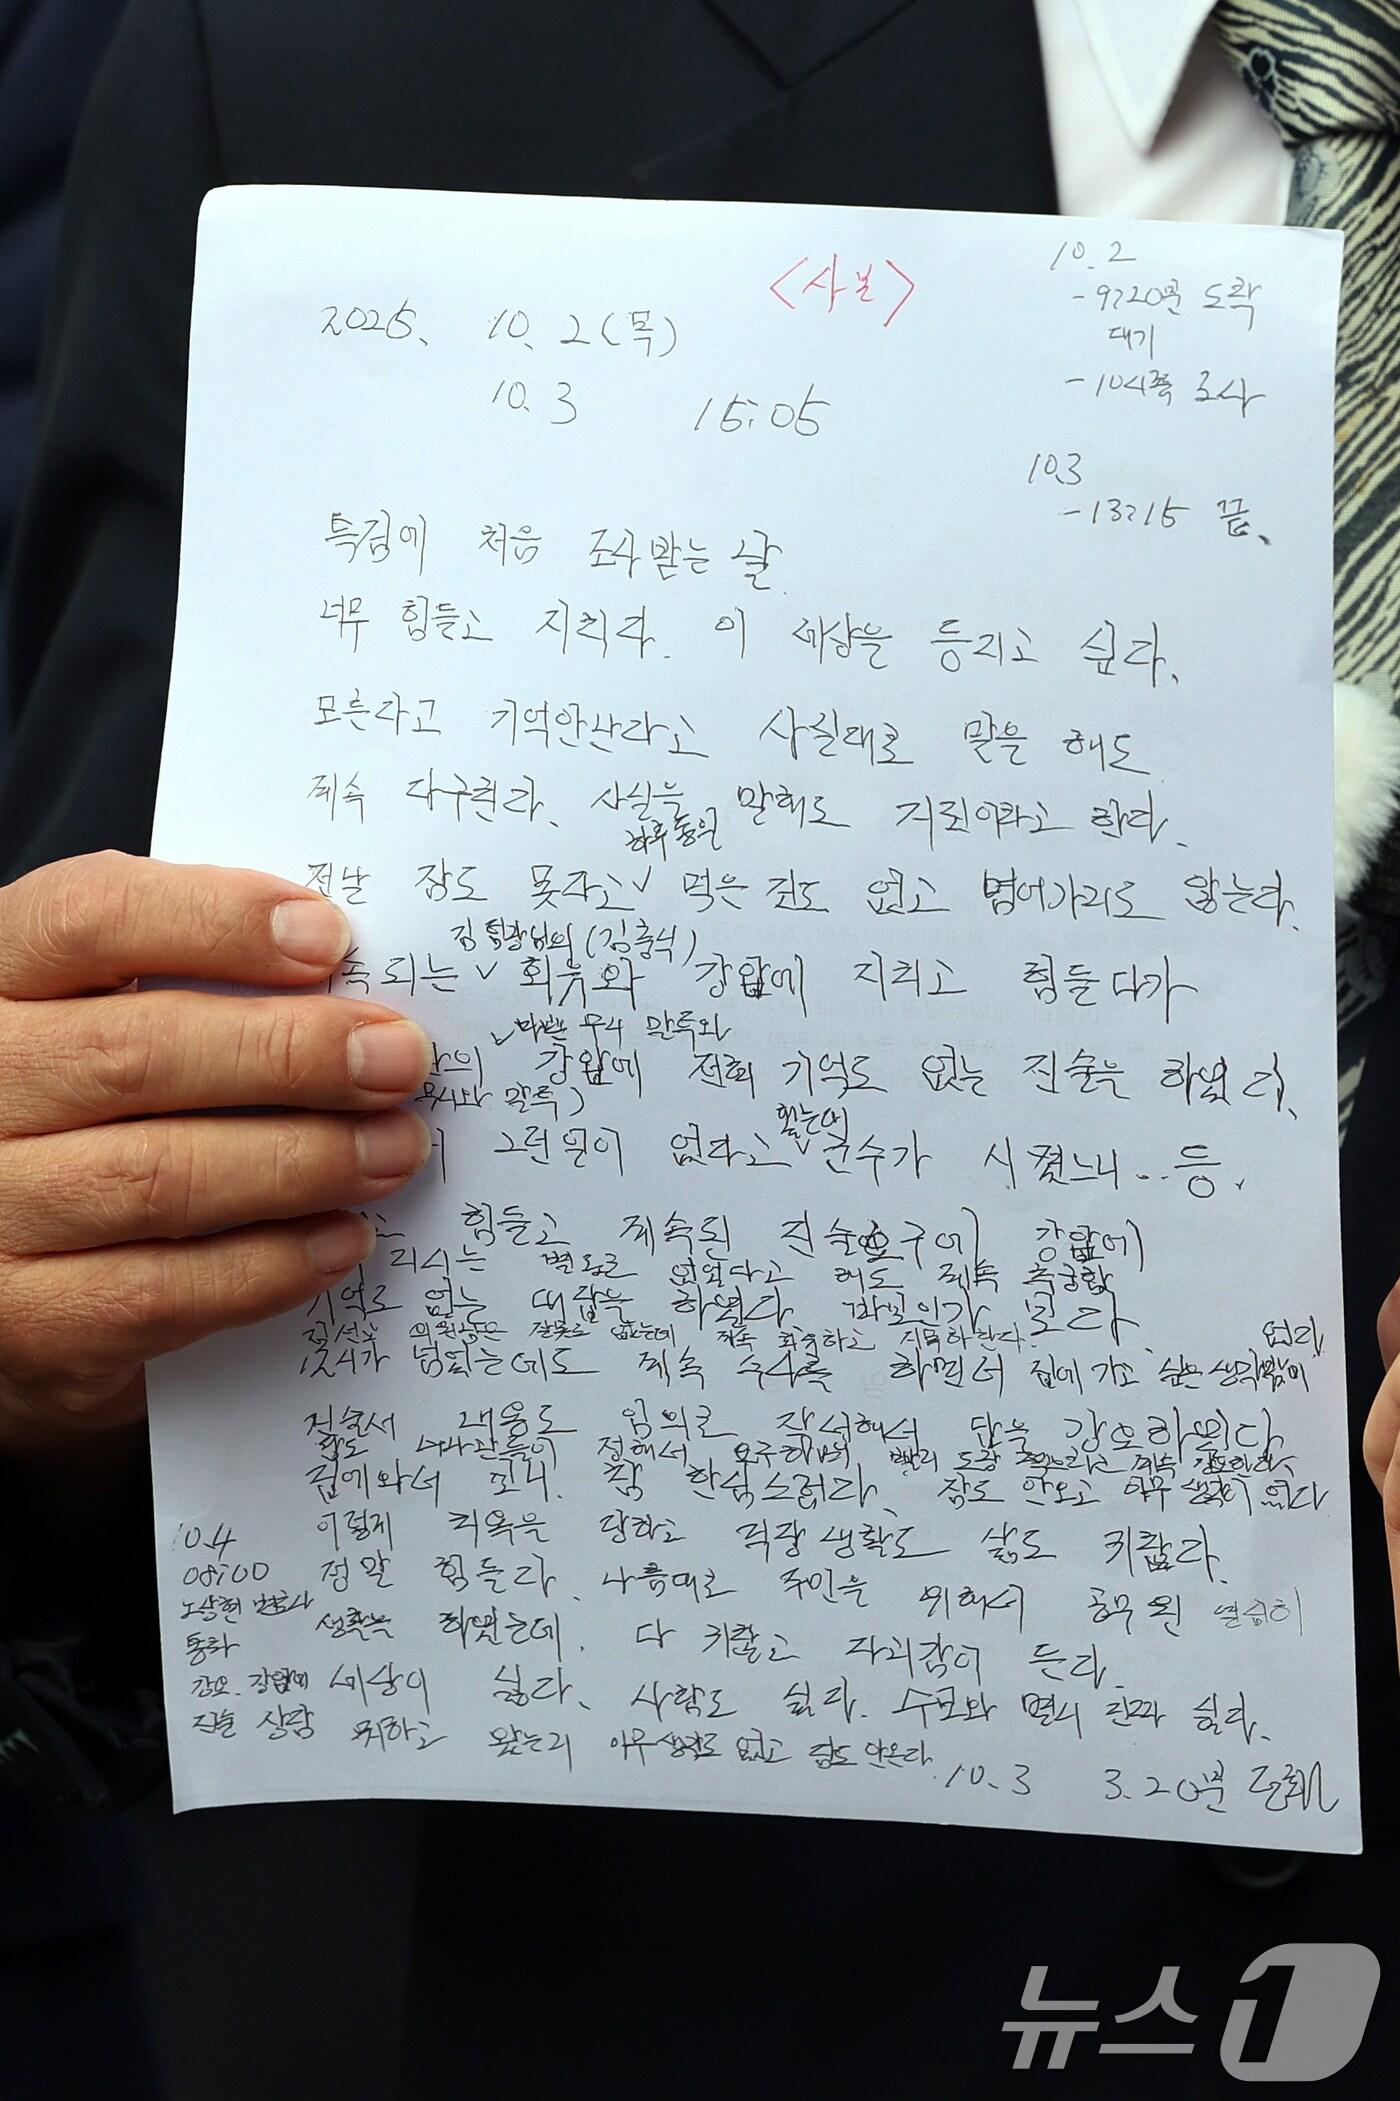 <사본>
10.2
-9:20분 도착
대기
-10시쯤 조사
2025. 10. 2 (목)
10. 3 15:05
10.3
-13:15 끝.
특검에 처음 조사받는 날.
너무 힘들고 지친다. 이 세상을 등지고 싶다.
모른다고 기억안난다고 사실대로 말을 해도
계속 다그친다. 사실을 말해도 거짓이라고 한다.
하루종일
전날 잠도 못자고 ∨ 먹은 것도 없고 멍어가리도 않는다.
김 팀장님의 (김충식)
속되는 ∨ 회유와 강압에 지치고 힘들다가
∨ 무시 말투와
강압에 전혀 기억도 없는 진술을 하였다.
무시와 말투)
그런일이 없다고 ∨ 군수가 시켰느니...등.
힘들고 계속된 진술요구에 강압에
별도로 없었다고 해도 계속 추궁함
기억도 없는 대답을 하였다 바보인가 보다.
김선교 의원님은 잘못도 없는데 계속 회유하고 지목하란다.
없다.
12시가 넘었는데도 계속 수사를 하면서 집에 가고 싶은 생각밖에
진술서 내용도 임의로 작성해서 답을 강요하였다.
답도 수사관들이 정해서 요구하며 빨리 도장 찍으라고 계속 강요한다.
집에와서 보니. 참 한심스럽다. 잠도 안오고 아무 생각이 없다
이렇게 치욕을 당하고 직장생활도 삶도 귀찮다.
정말 힘들다. 나름대로 주민을 위해서 공무원 열심히
생활을 하였는데. 다 귀찮고 자괴감이 든다.
세상이 싫다. 사람도 싫다. 수모와 멸시 진짜 싫다.
10.4
08:00
노상현 변호사
통화
강요. 강압에
진술 상담 퇴하고 왔는지 아무생각도 없고 잠도 안온다.
10. 3 3.20분